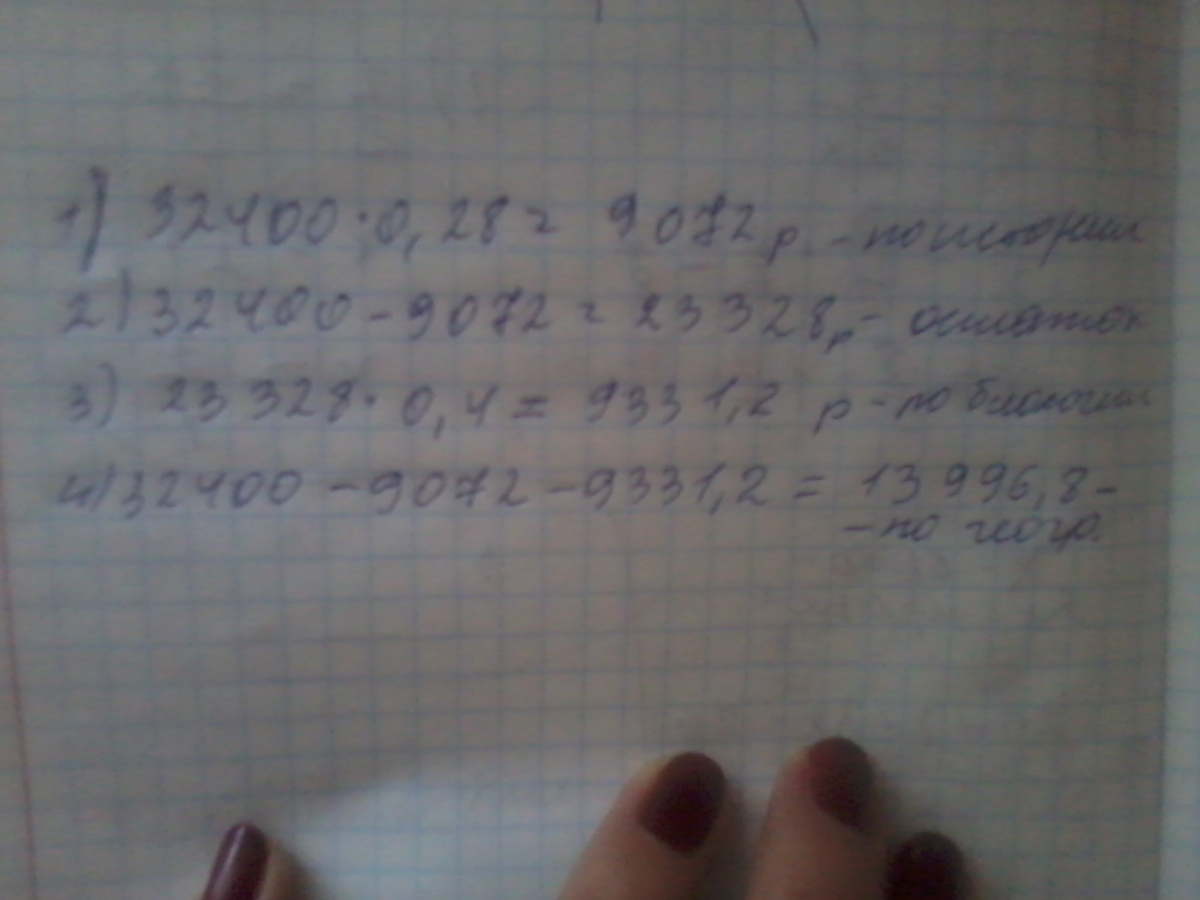 1) 32400 · 0,28 = 9072 р. - по истории
2) 32400 - 9072 = 23328 р - остаток
3) 23328 · 0,4 = 9331,2 р - по биологии
4) 32400 - 9072 - 9331,2 = 13996,8 -
- по геогр.